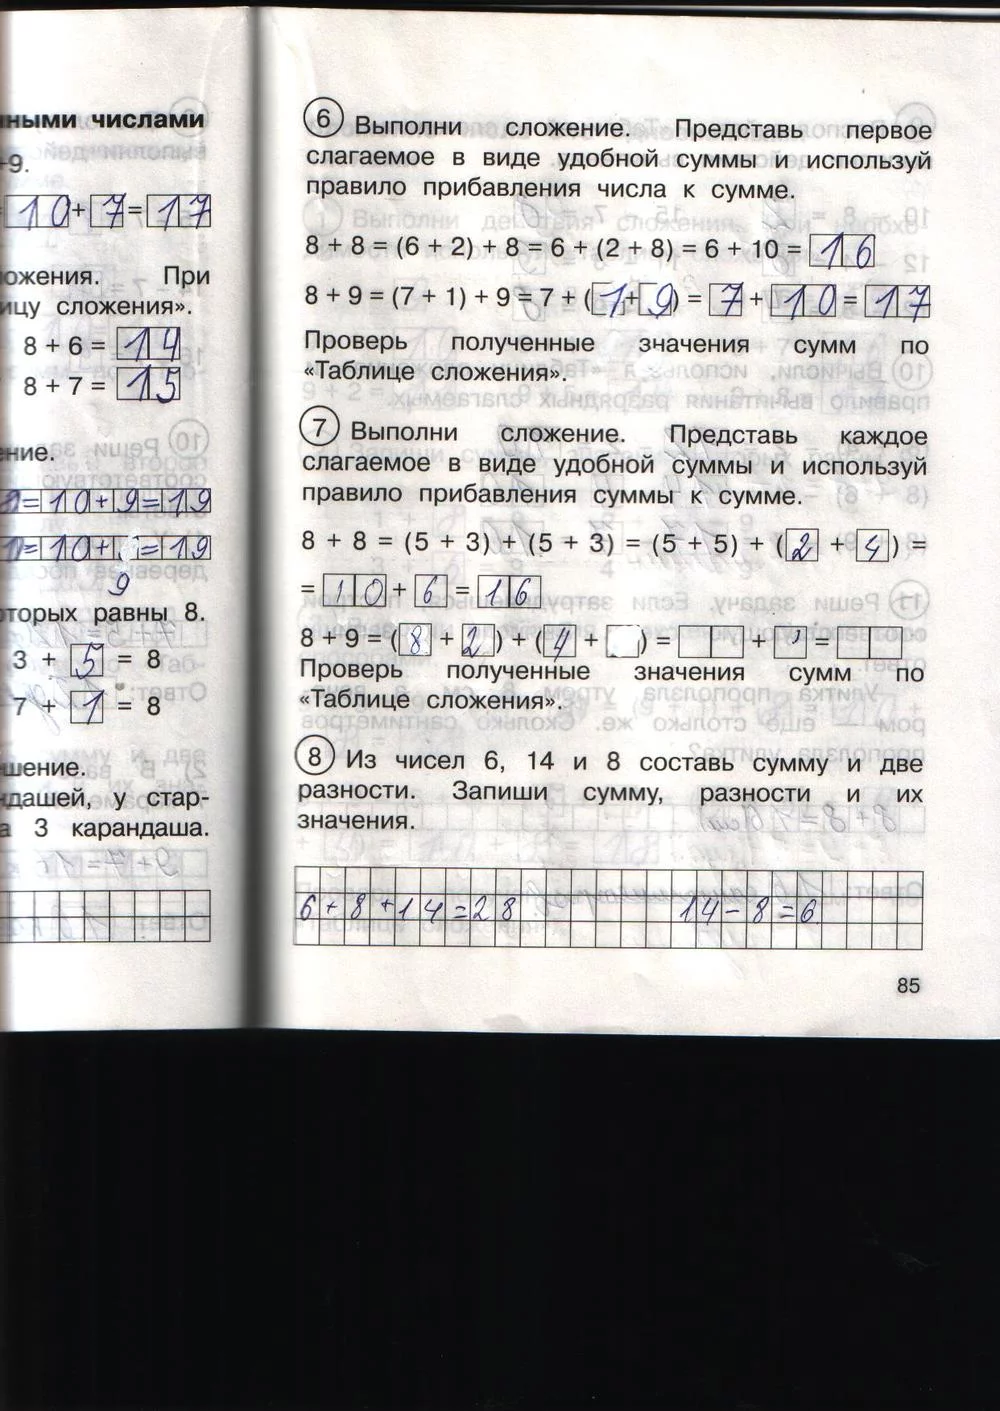 ными числами
+9.
= 10 + 7 = 17
ложения. При
ицу сложения».
8 + 6 = 14
8 + 7 = 15
ение.
= 10 + 9 = 19
= 10 + = 19
9
оторых равны 8.
3 + 5 = 8
7 + 1 = 8
шение.
ндашей, у стар-
а 3 карандаша.
6 Выполни сложение. Представь первое
слагаемое в виде удобной суммы и используй
правило прибавления числа к сумме.
8 + 8 = (6 + 2) + 8 = 6 + (2 + 8) = 6 + 10 = 16
8 + 9 = (7 + 1) + 9 = 7 + (1 + 9) = 7 + 10 = 17
Проверь полученные значения сумм по
«Таблице сложения».
7 Выполни сложение. Представь каждое
слагаемое в виде удобной суммы и используй
правило прибавления суммы к сумме.
8 + 8 = (5 + 3) + (5 + 3) = (5 + 5) + (2 + 4) =
= 10 + 6 = 16
8 + 9 = (8 + 2) + (4 + ) = + =
Проверь полученные значения сумм по
«Таблице сложения».
8 Из чисел 6, 14 и 8 составь сумму и две
разности. Запиши сумму, разности и их
значения.
6 + 8 + 14 = 28 14 - 8 = 6
85